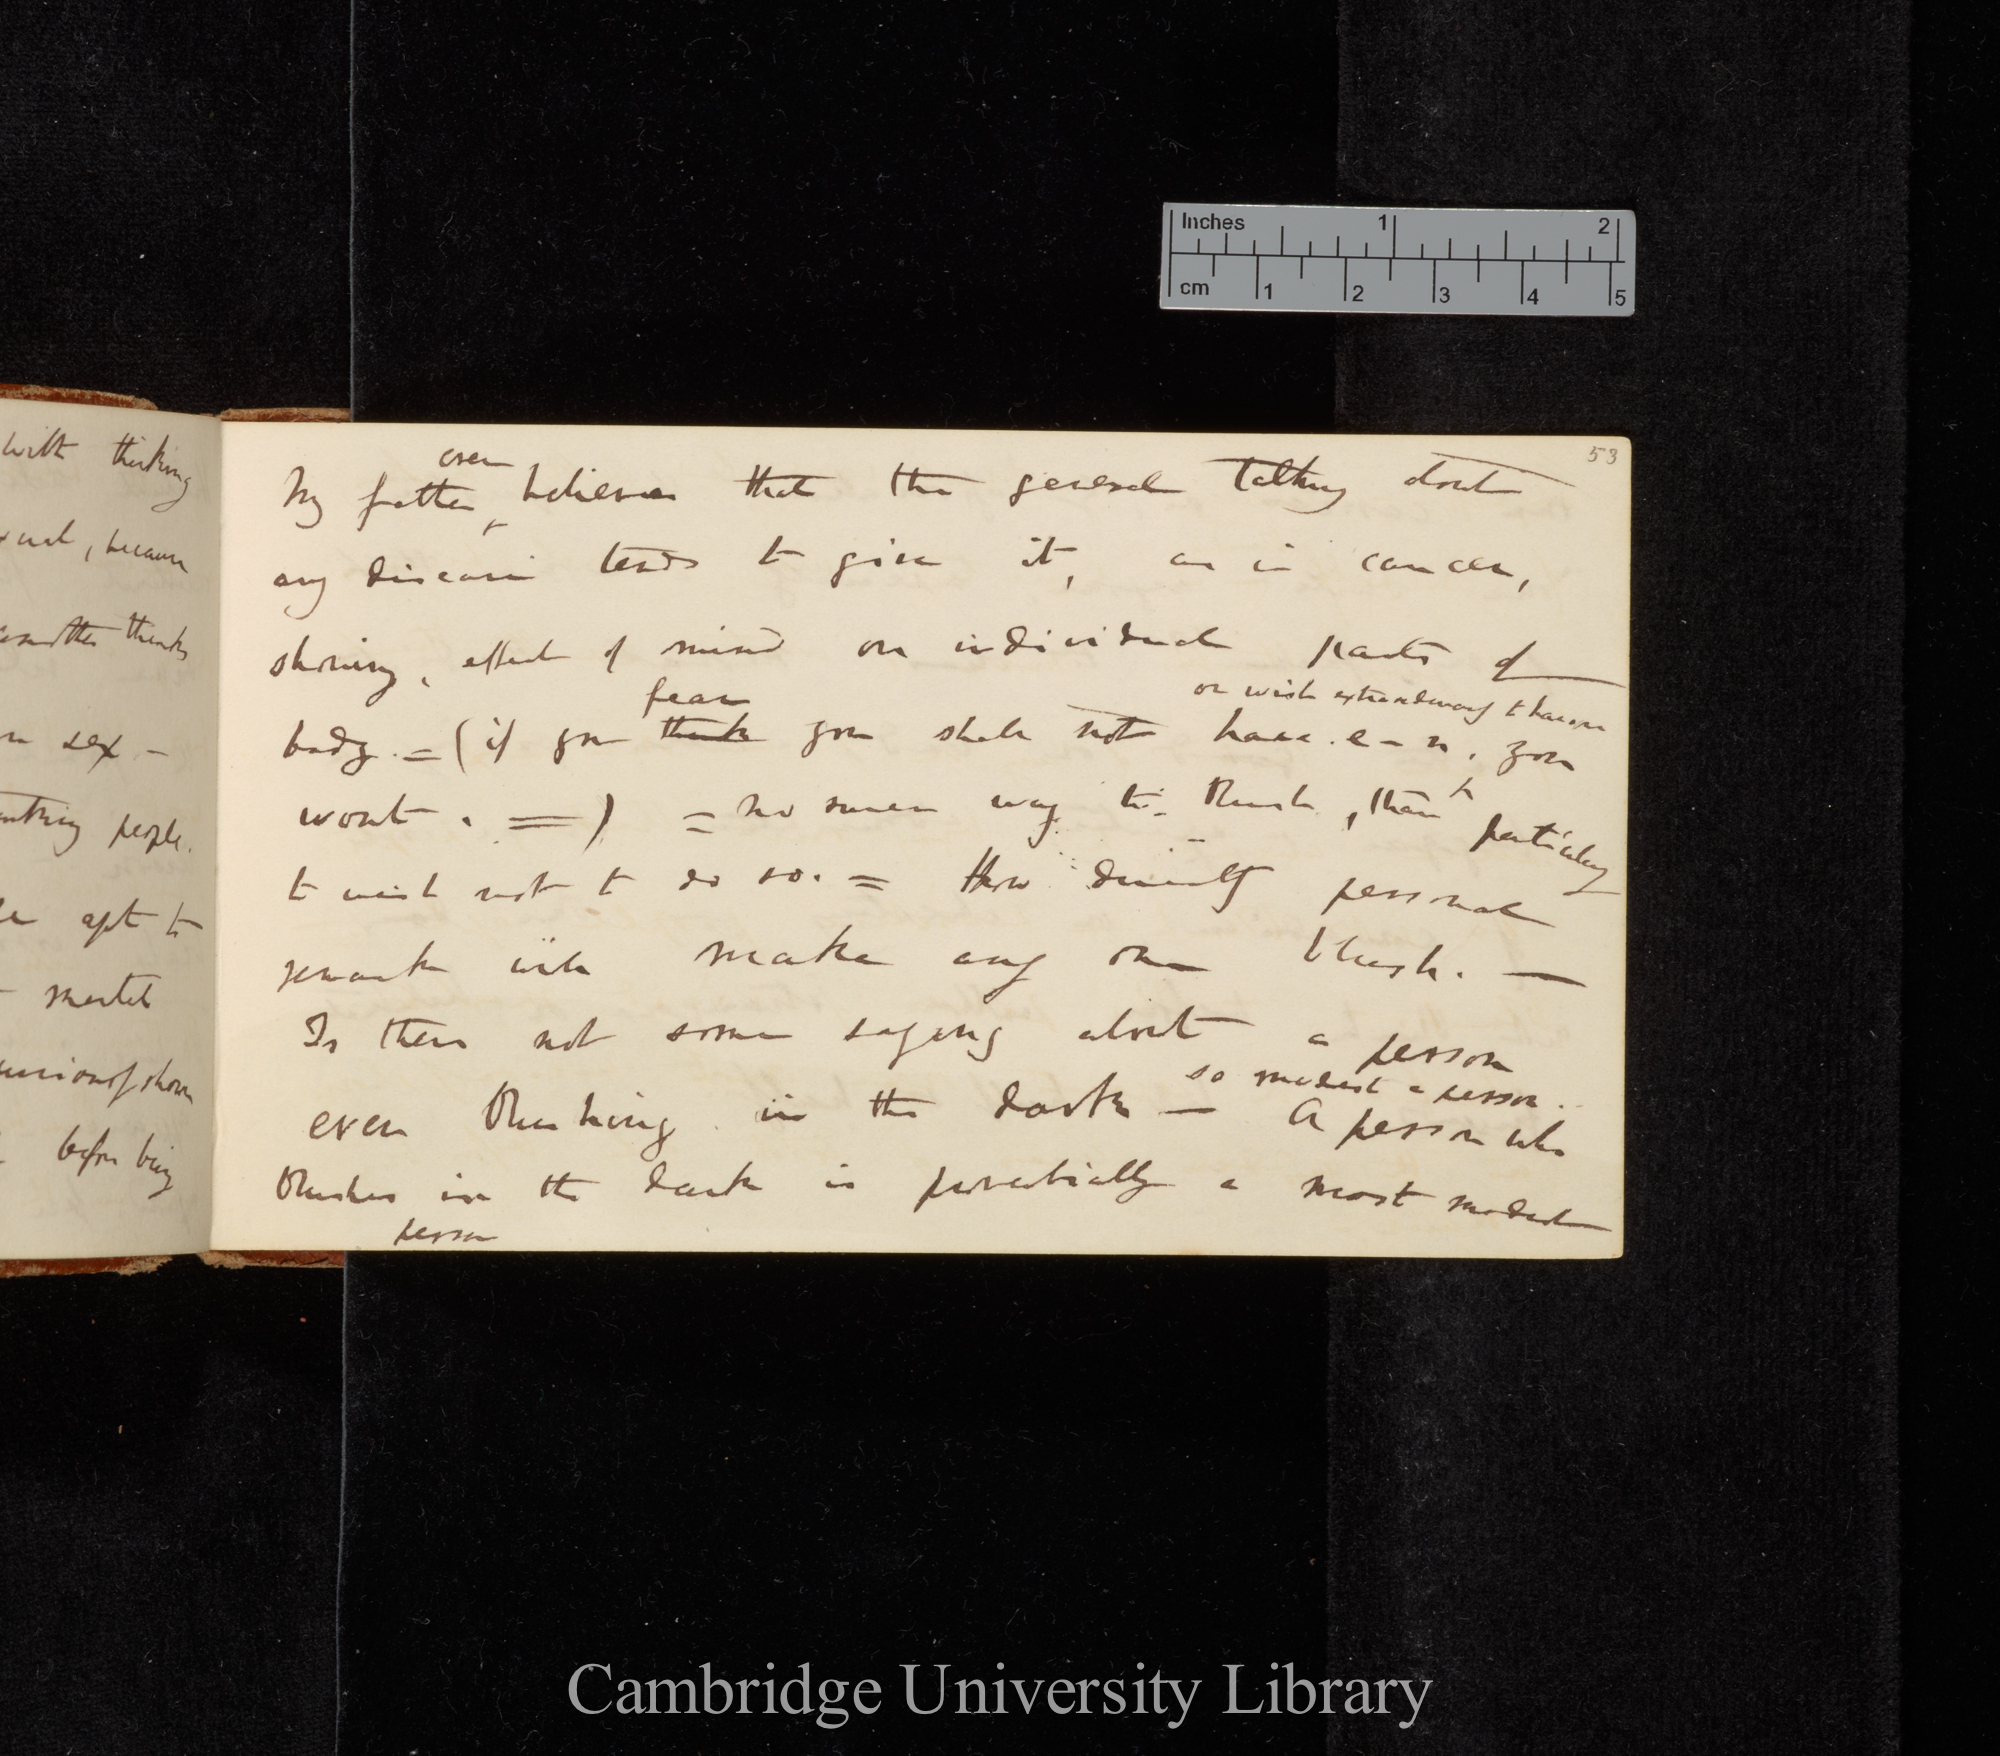 Inches 1 2
cm 1 2 3 4 5
with thinking
because
thinks
sex —
people.
apt to
before being
53
even
My father believes that the general talking about
any disease tends to give it, as in cancer,
showing, effect of mind on individual parts of
fear
or wish extraordinarily to have one
body. = (if you think you shall not have. e—n. you
wont. =) = no surer way to blush, than particularly
to wish not to do so. = How directly personal
remark will make any one blush. —
Is there not some saying about a person
so modest a person.
even blushing in the dark — A person who
blushes in the dark is proverbially a most modest
person
Cambridge University Library